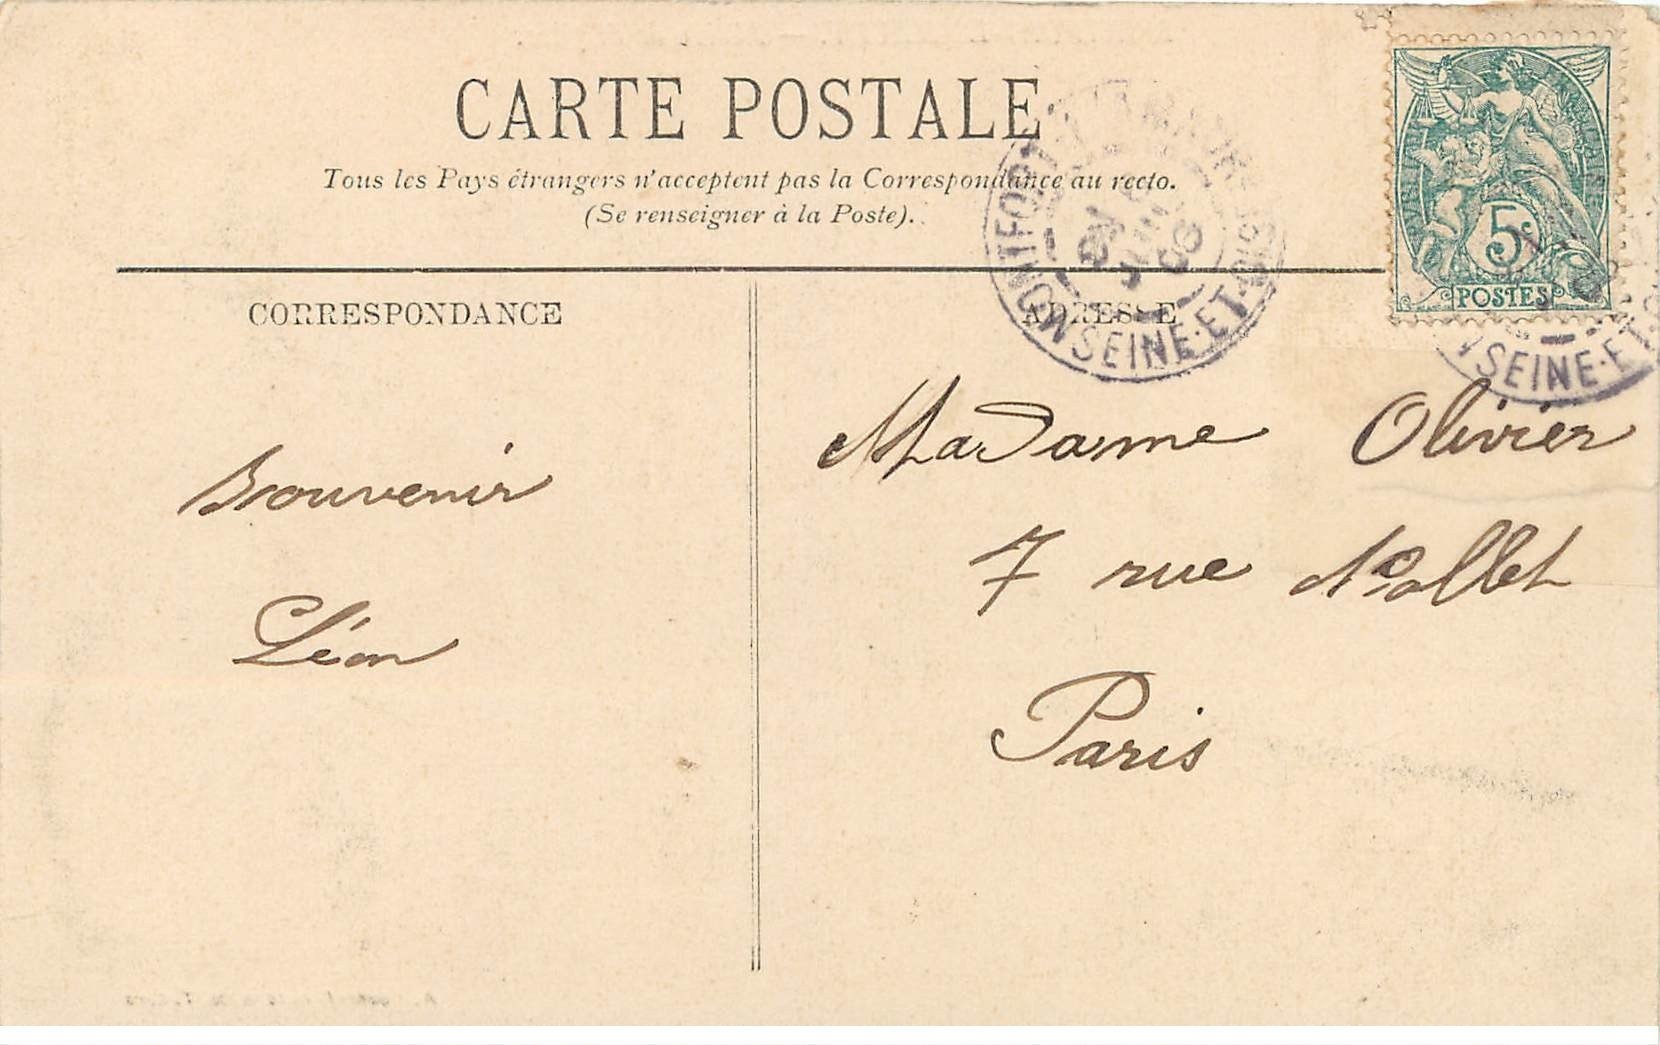 CARTE POSTALE
Tous les Pays étrangers n'acceptent pas la Correspondance au recto.
(Se renseigner à la Poste).
MONTFORT-L'AMAURY
SEINE-ET-OISE
5c
POSTES
SEINE-ET-O
CORRESPONDANCE
ADRESSE
Souvenir
Léon
Madame Olivier
7 rue Nollet
Paris